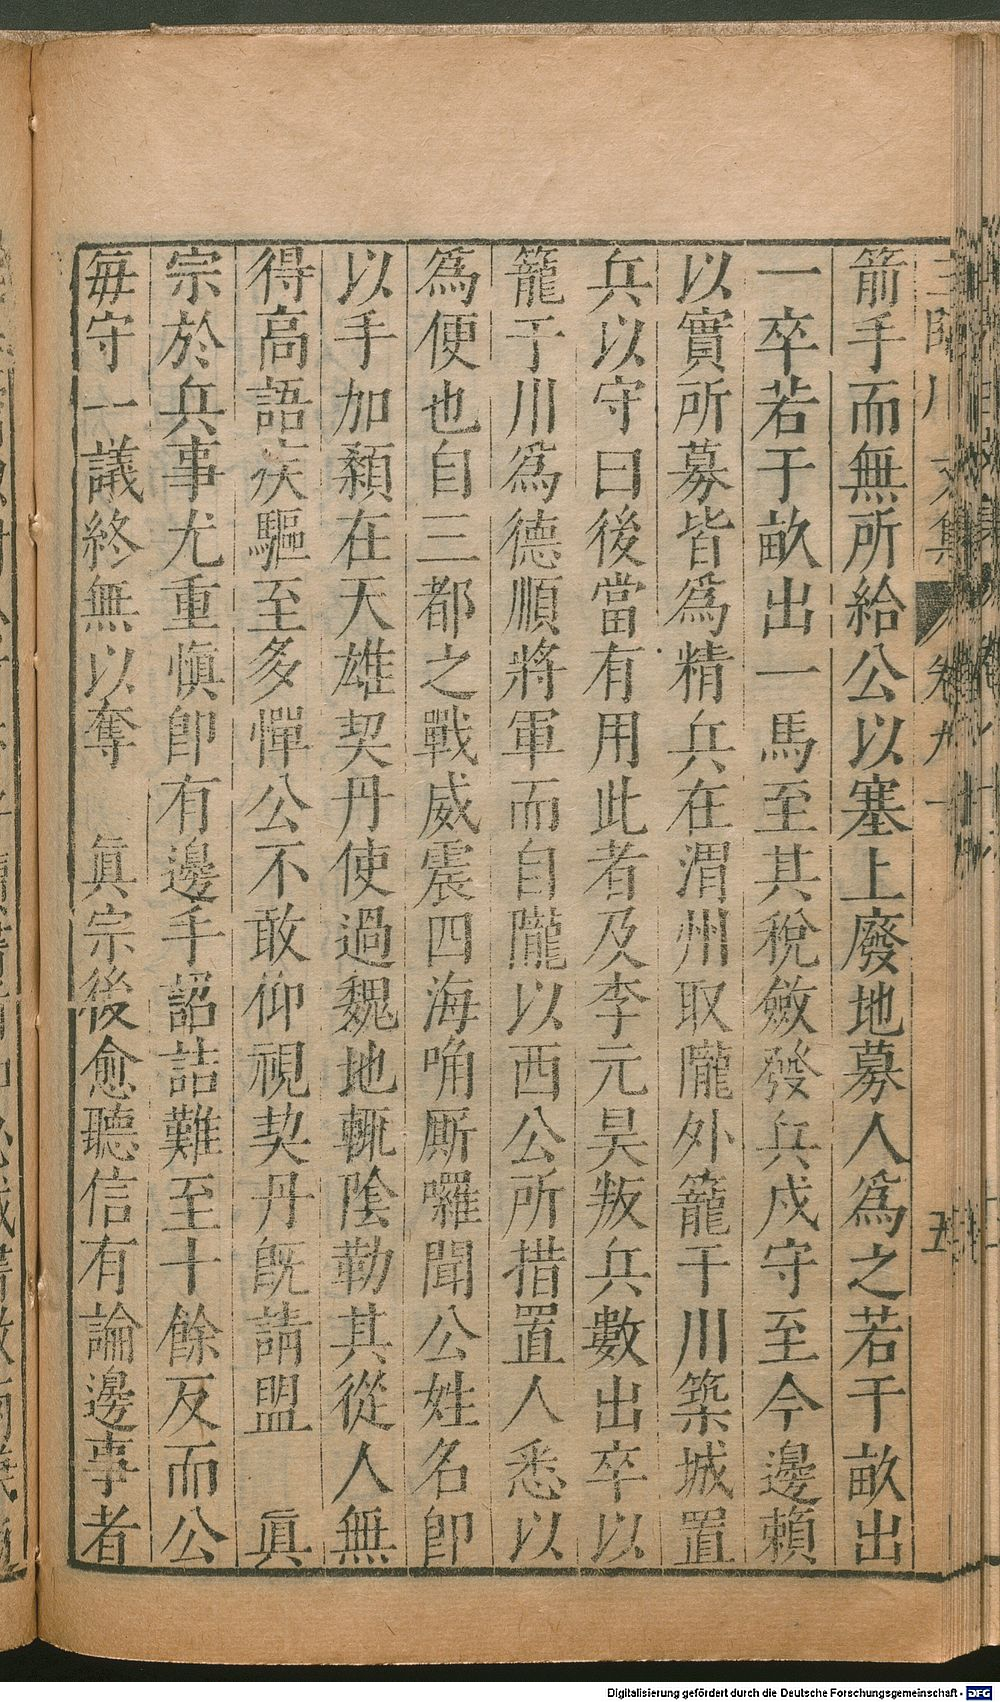 箭手而無所給公以塞上廢地募人爲之若干畝出
一卒若于畝出一馬至其稅斂發兵戍守至今邊賴
以實所募皆爲精兵在渭州取隴外籠干川築城置
兵以守曰後當有用此者及李元昊叛兵數出卒以
籠于川爲德順將軍而自隴以西公所措置人悉以
爲便也自三都之戰威震四海唃厮囉聞公姓名即
以手加顙在天雄契丹使過魏地輒陰勒其從人無
得高語疾驅至多憚公不敢仰視契丹旣請盟　眞
宗於兵事尤重愼卽有邊手詔詰難至十餘反而公
每守一議終無以奪　眞宗後愈聽信有論邊事者
文集 卷九
五
Digitalisierung gefördert durch die Deutsche Forschungsgemeinschaft - DFG